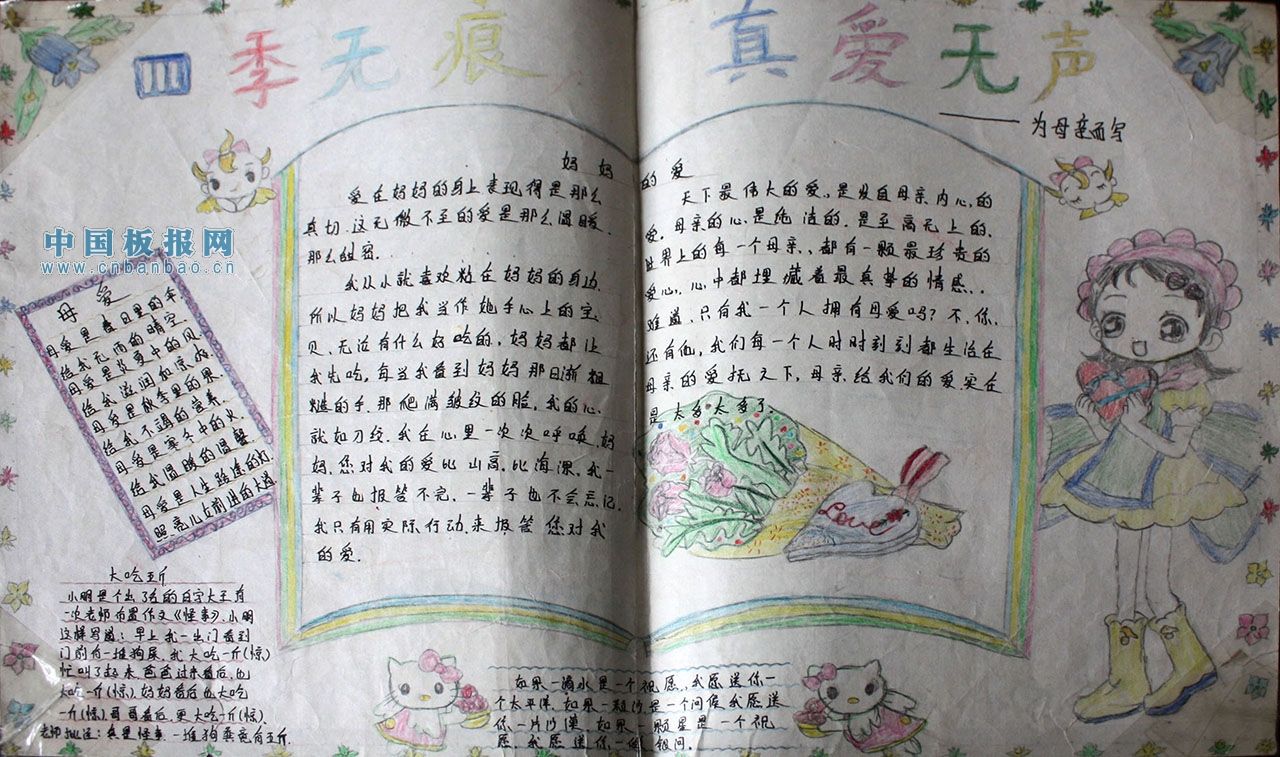 四季无痕 真爱无声
——为母亲而写
中国板报网
www.cnbanbao.cn
母爱
母爱是春日里的手
给我无雨的晴空
母爱是炎夏中的风
给我滋润和凉爽
母爱是秋季里的果
给我不竭的营养
母爱是寒冬中的火
给我温暖的温馨
母爱是人生路途的灯
照亮儿女前进的大道
妈妈的爱
爱在妈妈的身上表现得是那么
真切.这无微不至的爱是那么温暖.
那么甜蜜.
我从小就喜欢粘在妈妈的身边.
所以妈妈把我当作她手心上的宝
贝.无论有什么好吃的,妈妈都让
我先吃,每当我看到妈妈那日渐粗
糙的手.那爬满皱纹的脸,我的心.
就如刀绞.我在心里一次次呼唤.妈
妈.您对我的爱比山高.比海深,我一
辈子也报答不完.一辈子也不会忘记.
我只有用实际行动.来报答您对我
的爱.
天下最伟大的爱.是发自母亲内心,的
爱.母亲的心.是纯洁的.是至高无上的.
世界上的每一个母亲、都有一颗最珍贵的
爱心,心中都埋藏着最真挚的情感..
难道.只有我一个人拥有母爱吗?不.你.
还有他,我们每一个人时时刻刻都生活在
母亲的爱抚之下,母亲给我们的爱.实在
是太多太多了
Love
大吃一斤
小明是个出了名的白字大王.有
一次老师布置作文《怪事》.小明
这样写道:早上我一出门看到
门前有一堆狗屎.我大吃一斤(惊)
忙叫了起来.爸爸过来看后,也
大吃一斤(惊).妈妈看后也大吃
一斤(惊).哥哥看后.更大吃一斤(惊).
老师批道:真是怪事.一堆狗粪竟有五斤.
如果一滴水是一个祝愿.我愿送你一
个太平洋.如果一粒沙是一个问候我愿送
你一片沙漠.如果一颗星是一个祝
愿.我愿送你一个银河.